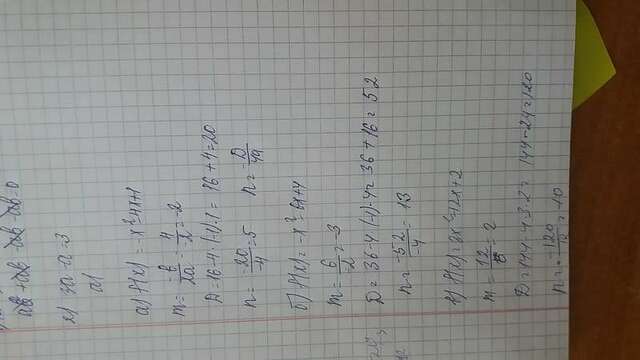 ab + ab - ab - ab = 0
2) 3a - a = 3
a)
a) f(x) = -x² - 4x + 1
m = -b/2a = 4/-2 = -2
D = 16 - 4 · (-1) · 1 = 16 + 4 = 20
n = -20/-4 = 5 n = -D/4a
б) f(x) = -x² - 6x + 4
m = 6/-2 = -3
D = 36 - 4 · (-1) · 4 = 36 + 16 = 52
n = -52/-4 = 13
в) f(x) = 3x² - 12x + 2
m = 12/6 = 2
D = 144 - 4 · 3 · 2 = 144 - 24 = 120
n = -120/12 = -10